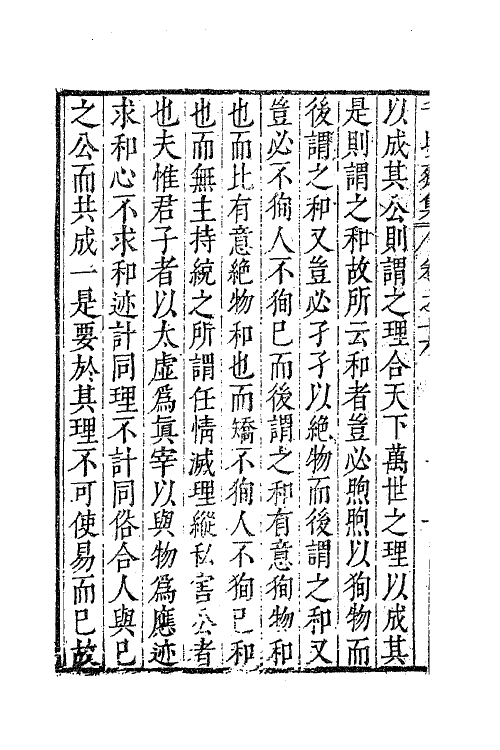 以成其公則謂之理合天下萬世之理以成其
是則謂之和故所云和者豈必煦煦以狥物而
後謂之和又豈必孑孑以絶物而後謂之和又
豈必不狥人不狥已而後謂之和有意狥物和
也而比有意絶物和也而矯不狥人不狥已和
也而無主持統之所謂任情滅理縱私害公者
也夫惟君子者以太虛爲眞宰以與物爲應迹
求和心不求和迹計同理不計同俗合人與已
之公而共成一是要於其理不可使易而已故